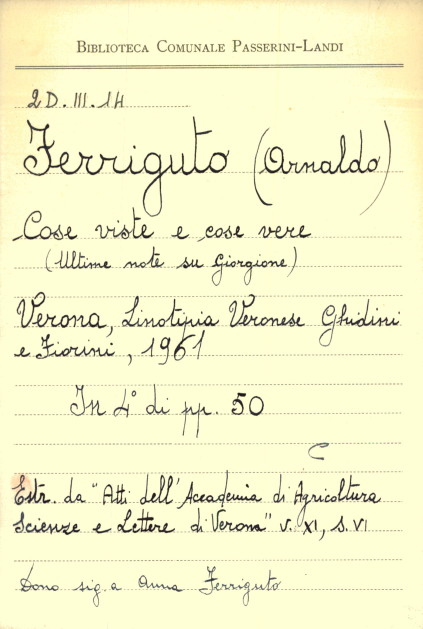 BIBLIOTECA COMUNALE PASSERINI-LANDI
2D.III.14
Ferriguto (Arnaldo)
Cose viste e cose vere
(Ultime note su Giorgione)
Verona, Linotipia Veronese Ghidini
e Fiorini, 1961
In 4° di pp. 50
C
Estr. da "Atti dell'Accademia di Agricoltura
Scienze e Lettere di Verona" v. XI, s. VI
Dono sig.a Anna Ferriguto